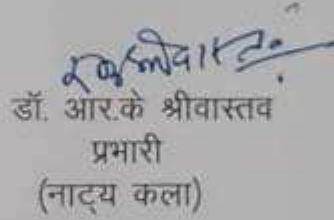 डॉ. आर.के श्रीवास्तव
प्रभारी
(नाट्य कला)